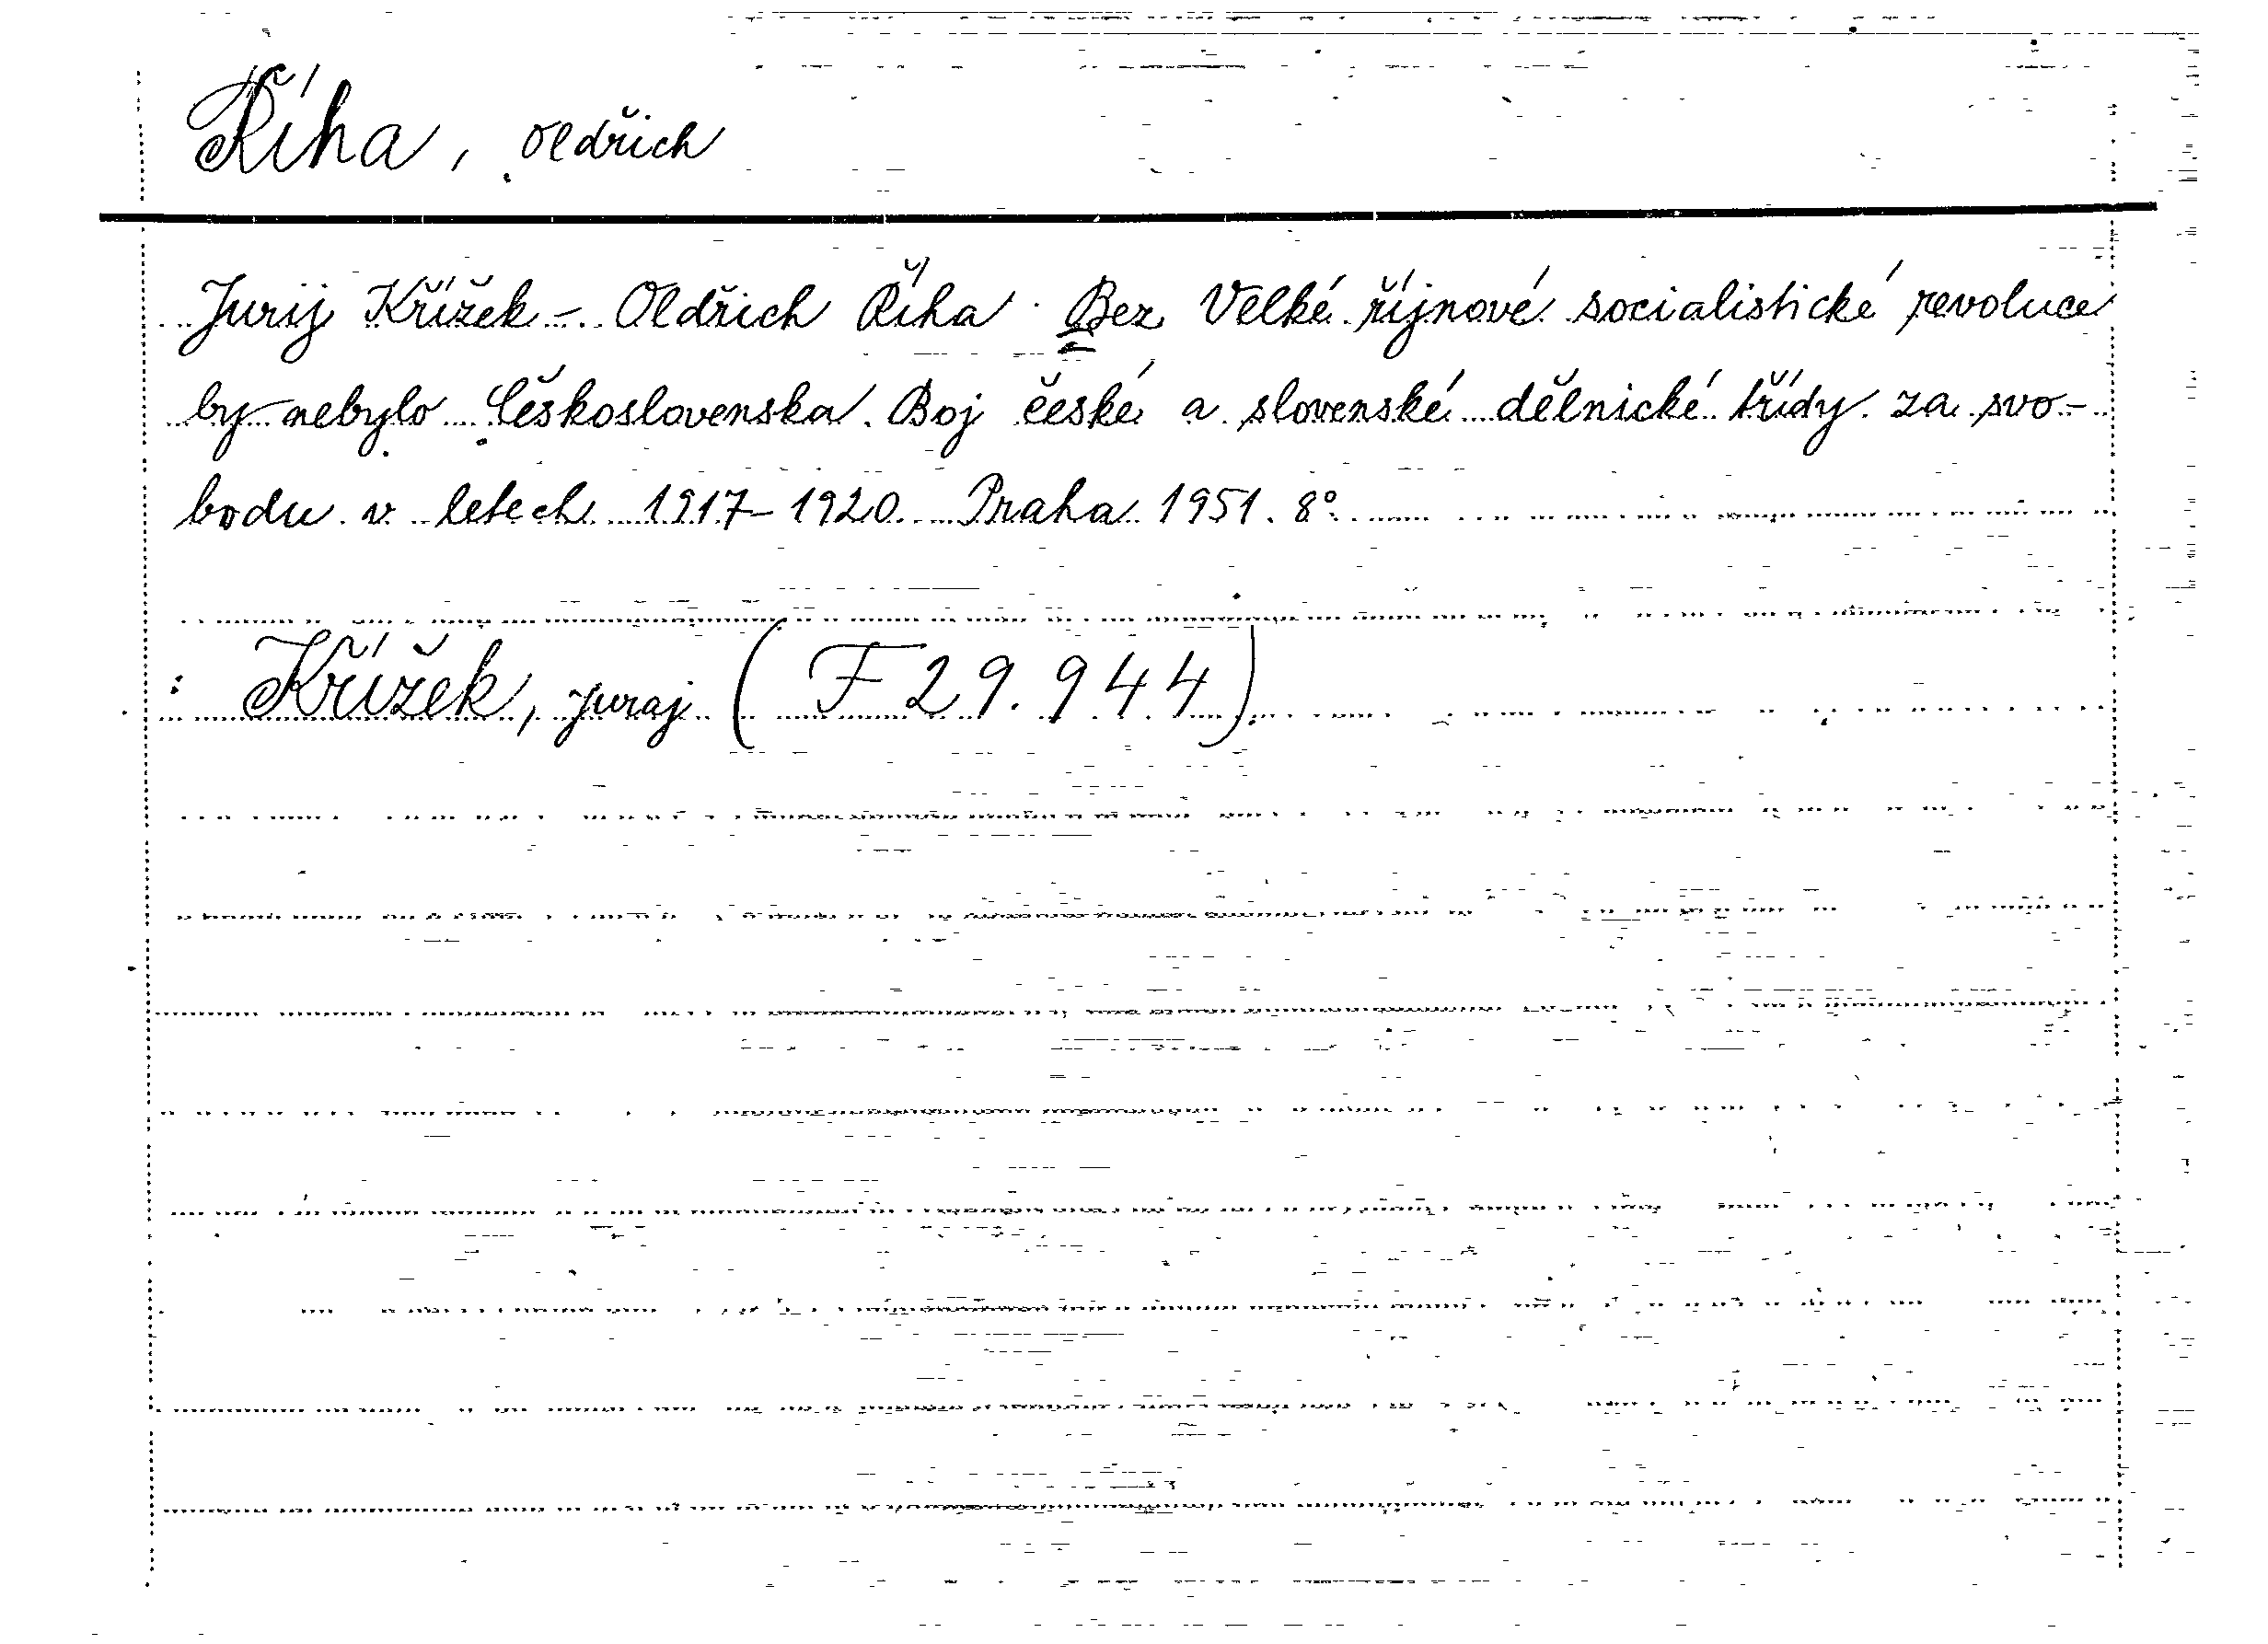 Říha, Oldřich
Jurij Křížek - Oldřich Říha. Bez Velké říjnové socialistické revoluce
by nebylo Československa. Boj české a slovenské dělnické třídy za svo-
bodu v letech 1917-1920. Praha 1951. 8°.
: Křížek, Juraj (F 29.944)